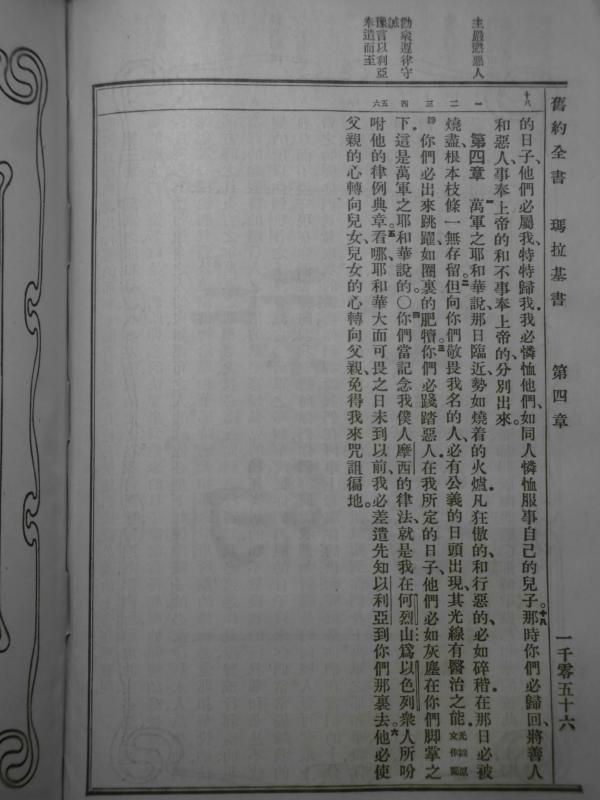 舊約全書　瑪拉基書　第四章　一千零五十六
主嚴懲惡人
勸衆遵律守誡
豫言以利亞奉遣而至
十八
的日子、他們必屬我、特特歸我、我必憐恤他們、如同人憐恤服事自己的兒子。十八那時你們必歸回、將善人
和惡人、事奉上帝的和不事奉上帝的、分別出來。
一
第四章　一萬軍之耶和華說、那日臨近、勢如燒着的火爐、凡狂傲的、和行惡的、必如碎稭、在那日必被
二
燒盡、根本枝條一無存留。二但向你們敬畏我名的人、必有公義的日頭出現、其光線有醫治之能、
三
你們必出來跳躍、如圈裏的肥犢。三你們必踐踏惡人、在我所定的日子、他們必如灰塵在你們脚掌之
四
下、這是萬軍之耶和華說的。〇四你們當記念我僕人摩西的律法、就是我在何烈山爲以色列衆人所吩
五
咐他的律例典章。五看哪、耶和華大而可畏之日未到以前、我必差遣先知以利亞到你們那裏去。六他必使
六
父親的心轉向兒女、兒女的心轉向父親、免得我來咒詛徧地。